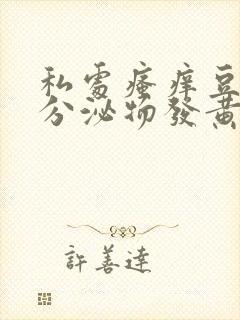 私處瘙痒豆
分泌物發黃
許善達